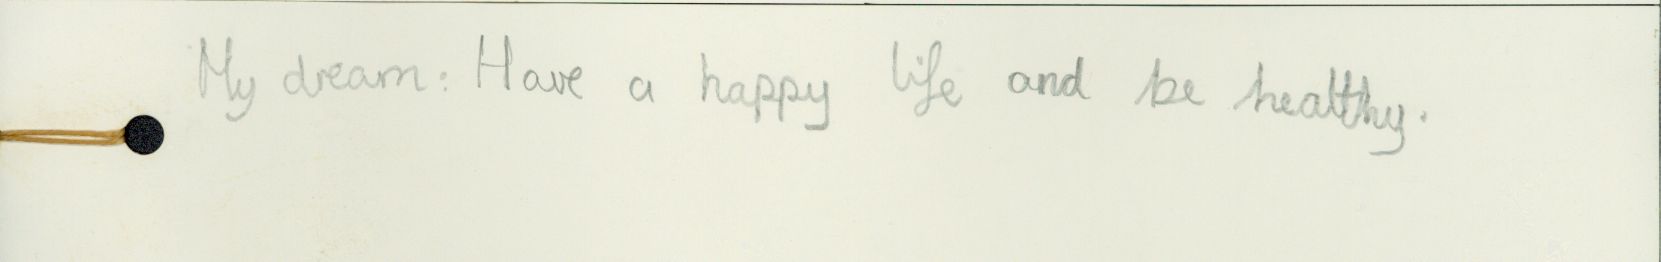 My dream: Have a happy life and be healthy.